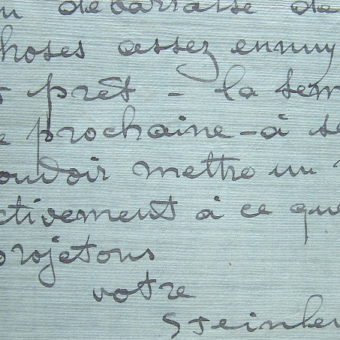 u débarrassé de
choses assez ennuy
t prêt - la sem
e prochaine - à se
ouvoir mettre un
ctivement à ce que
projetons
votre
Steinlen